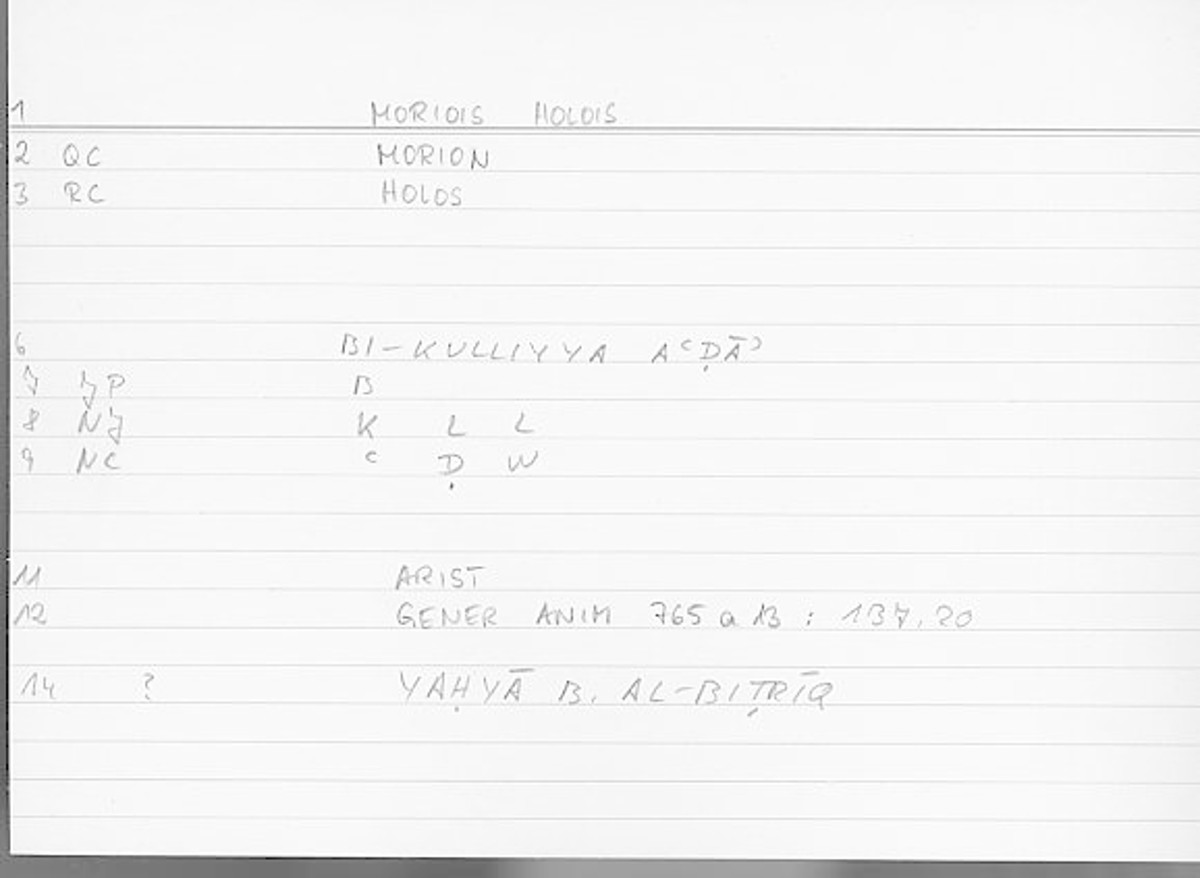 1 MORIOIS HOLOIS
2 QC MORION
3 RC HOLOS
6 BI-KULLIYYA AʿḌĀʾ
7 JP B
8 NJ K L L
9 NC ʿ Ḍ W
11 ARIST
12 GENER ANIM 765 a 13 : 137,20
14 ? YAḤYĀ B. AL-BIṬRĪQ